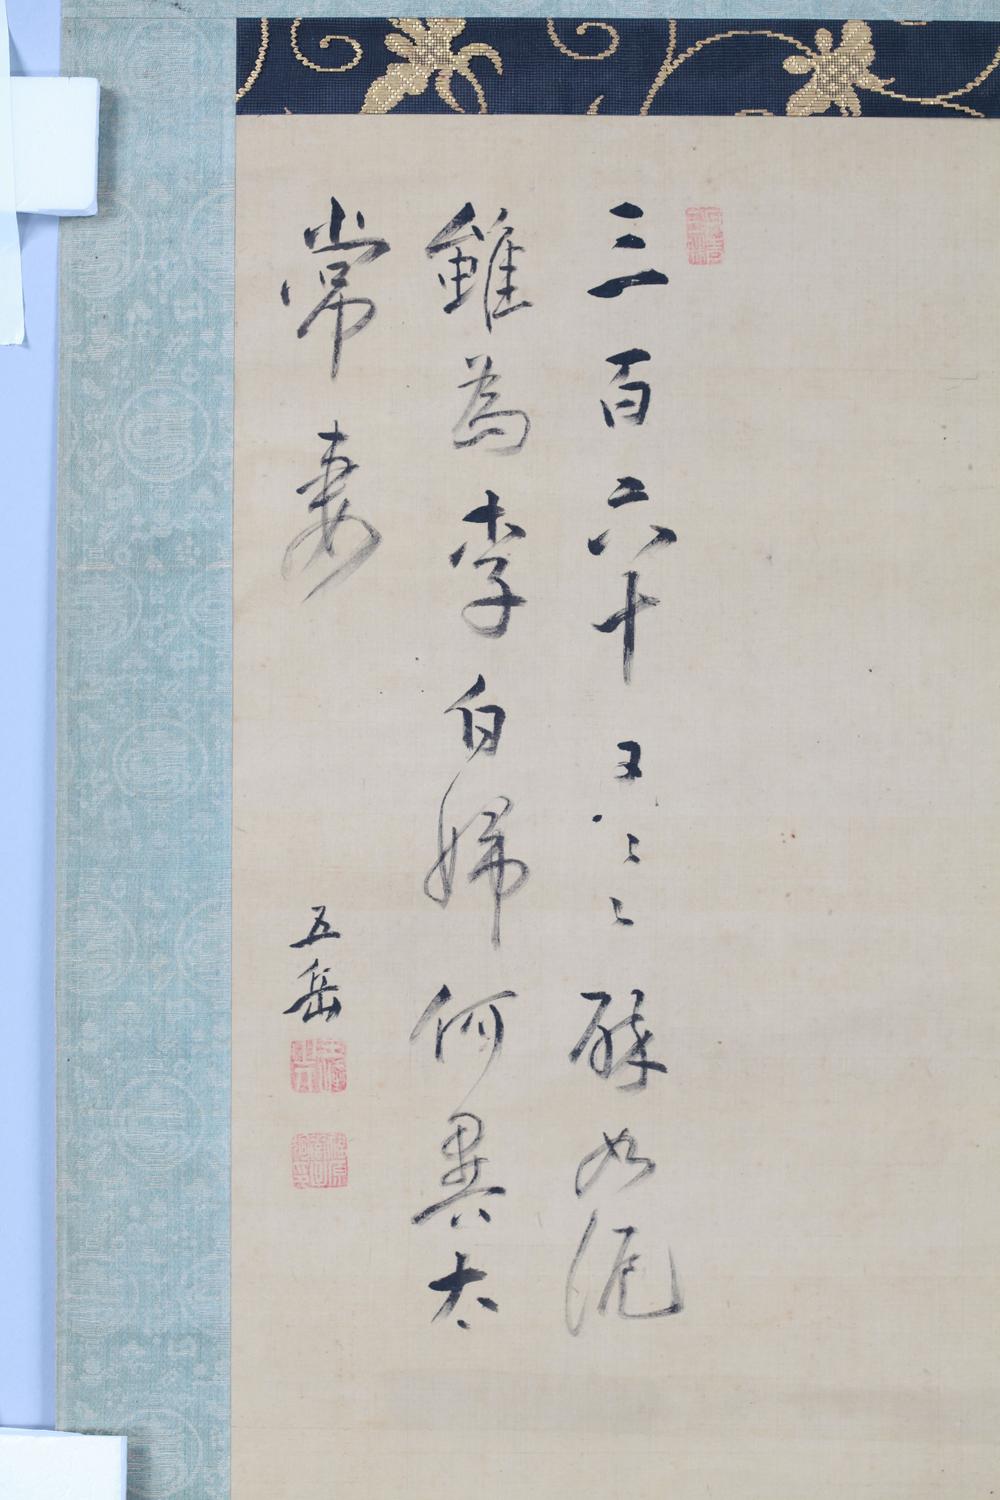 三百六十日〻〻醉如泥
雖為李白婦何異太
常妻
五岳